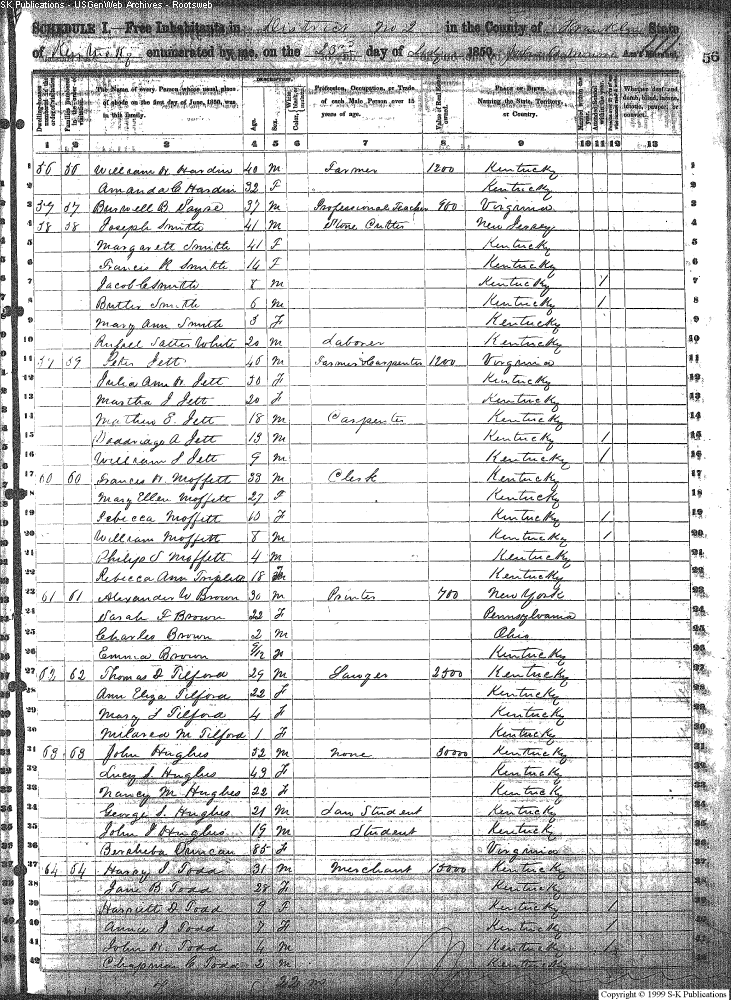 SK Publications - USGenWeb Archives - Rootsweb
SCHEDULE I.—Free Inhabitants in District No 2 in the County of Franklin State
of Kentucky enumerated by me, on the day of 1850. 56
DESCRIPTION.
Dwelling-houses numbered in the order of visitation. Families numbered in the order of visitation. The Name of every Person whose usual place of abode on the first day of June, 1850, was in this family. Age. Sex. Profession, Occupation, or Trade of each Male Person over 15 years of age. Value of Real Estate owned. Place of Birth, Naming the State, Territory, or Country. Whether deaf and dumb, blind, insane, idiotic, pauper, or convict.
1 2 3 4 5 6 7 8 9 10 11 12 13
1 56 56 William H Hardin 40 M Farmer 1200 Kentucky 1
2 Amanda C Hardin 32 F Kentucky 2
3 57 57 Burwell B Sayre 37 M Professional Teacher 900 Virginia 3
4 58 58 Joseph Smith 41 M Stone Cutter New Jersey 4
5 Margarett Smith 41 F Kentucky 5
6 Francis R Smith 14 F Kentucky 6
7 Jacob C Smith 8 M Kentucky / 7
8 Butler Smith 6 M Kentucky / 8
9 Mary Ann Smith 3 F Kentucky 9
10 White 20 M Laborer Kentucky 10
11 59 59 Peter Jett 45 M Farmer & Carpenter 1200 Virginia 11
12 Julia Ann H Jett 30 F Kentucky 12
13 Martha J Jett 20 F Kentucky 13
14 Mathew E. Jett 18 M Carpenter Kentucky 14
15 A Jett 13 M Kentucky / 15
16 William S Jett 9 M Kentucky / 16
17 60 60 Frances H Moffett 33 M Clerk Kentucky 17
18 Mary Ellen Moffett 27 F Kentucky 18
19 Rebecca Moffett 10 F Kentucky / 19
20 William Moffett 8 M Kentucky / 20
21 Philip S Moffett 4 M Kentucky 21
22 Rebecca Ann Triplett 18 F Kentucky 22
23 61 61 Alexander W Brown 30 M Printer 700 New York 23
24 Sarah F Brown 22 F Pennsylvania 24
25 Charles Brown 2 M Ohio 25
26 Emma Brown F Kentucky 26
27 62 62 Thomas D Tilford 29 M Lawyer 2500 Kentucky 27
28 Ann Eliza Tilford 22 F Kentucky 28
29 Mary L Tilford 4 F Kentucky 29
30 Mildred M Tilford 1 F Kentucky 30
31 63 63 John Hughes 52 M None 30000 Kentucky 31
32 Lucy S Hughes 49 F Kentucky 32
33 Nancy M Hughes 22 F Kentucky 33
34 George S. Hughes 21 M Law Student Kentucky 34
35 John J Hughes 19 M Student Kentucky 35
36 Bersheba Duncan 85 F Virginia 36
37 64 64 Harry I Todd 31 M Merchant 15000 Kentucky 37
38 Jane B Todd 28 F Kentucky 38
39 Harriett D Todd 9 F Kentucky / 39
40 Annie J Todd 7 F Kentucky / 40
41 John H. Todd 4 M Kentucky / 41
42 Chapman C Todd 2 M Kentucky 42
22 m
Copyright © 1999 S-K Publications